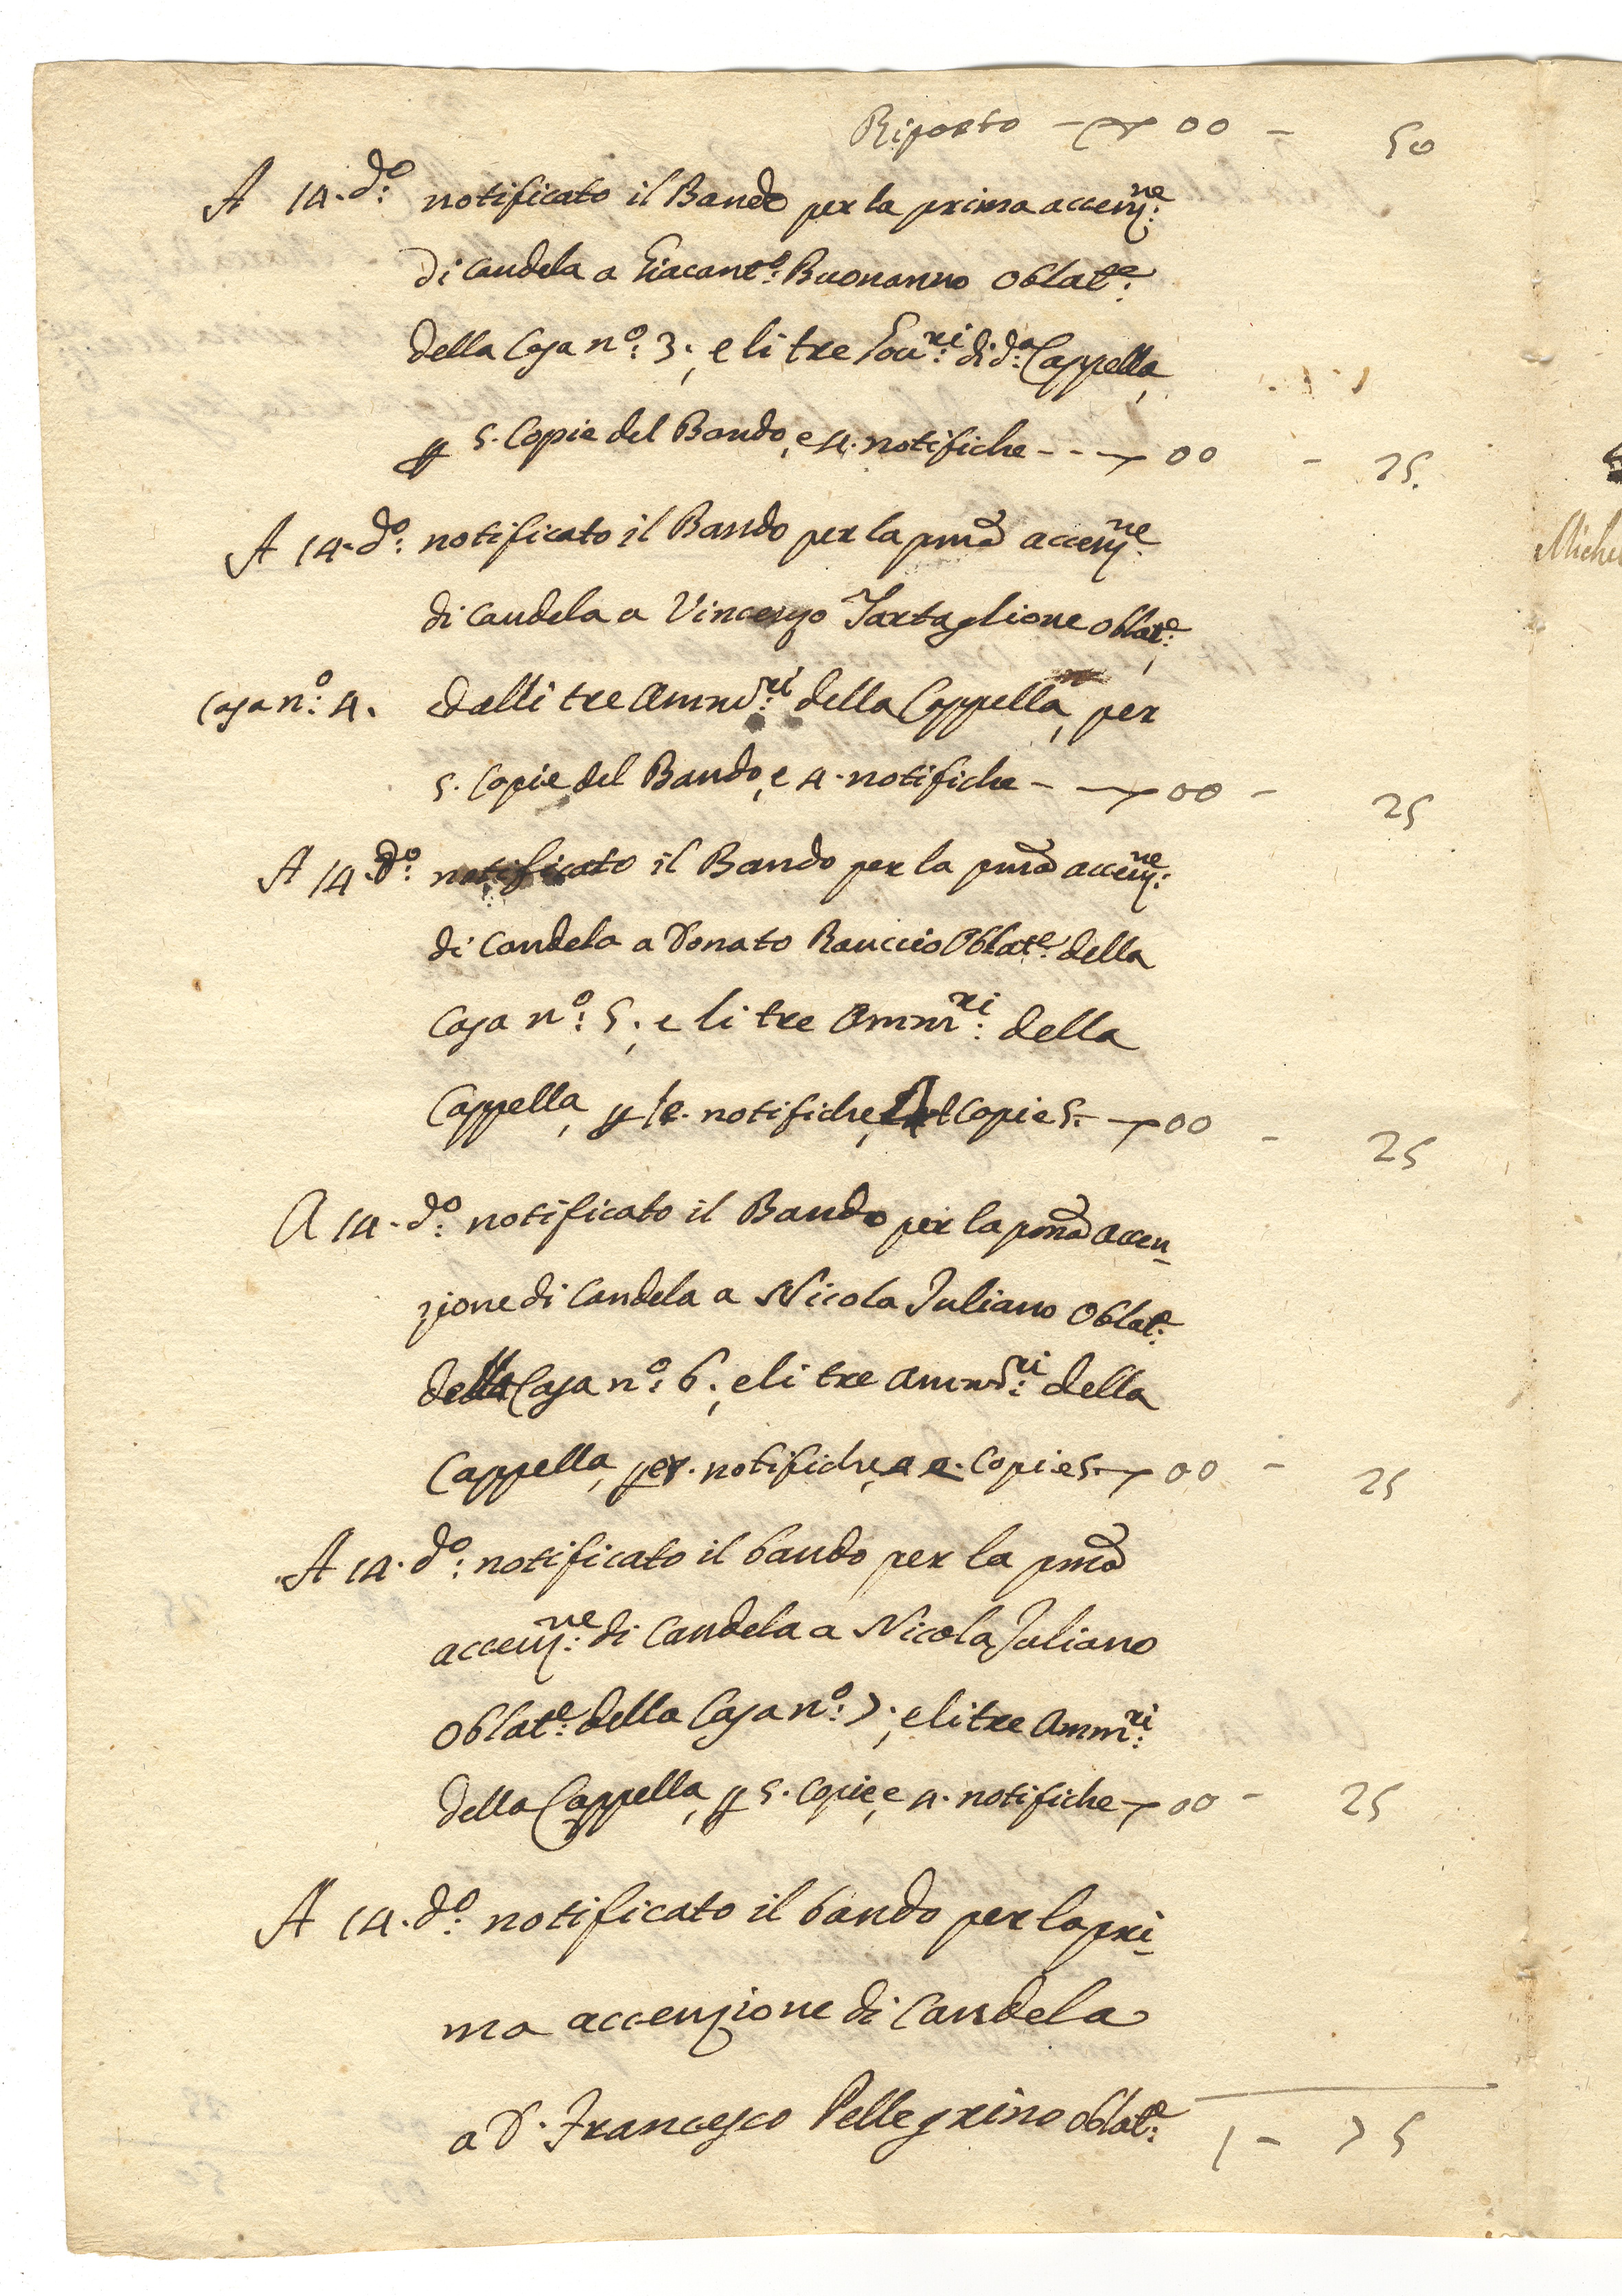 Riporto - 00 - 50
A 14. d.º notificato il Bando per la prima accenz.ne
di candela a Giacant.º Buonanno Oblat.e
della Casa nº: 3:, e li tre Gov.ri di d.a Cappella,
p 5. Copie del Bando, e 4. notifiche - - - 00 - 25.
A 14. d.º notificato il Bando per la pma accenz.ne
di candela a Vincenzo Tartaglione oblat.e,
Casa nº: 4. e dalli tre Ammri: della Cappella, per
5. Copie del Bando, e 4. notifiche - - 00 - 25
A 14. d.º notificato il Bando per la pma accenz.ne
di Candela a Donato Rauccio Oblat.e della
Casa nº: 5:, e li tre Ammri: della
Cappella, p le. notifiche, Copie 5. - 00 - 25
A 14. d.º notificato il Bando per la pma accen-
zione di Candela a Nicola Juliano Oblat.e
della Casa nº: 6:, e li tre Ammri: della
Cappella, per. notifiche, 4 e. Copie 5. - 00 - 25
A 14. d.º: notificato il bando per la pma
accenz.ne: di Candela a Nicola Juliano
Oblat.e: della Casa nº: 7:, e li tre Ammri:
della Cappella, p 5. Copie, e 4. notifiche - 00 - 25
A 14. d.º: notificato il bando per la pri-
ma accenzione di Candela
a D. Francesco Pellegrino oblat.e: 1 - 75
Miche